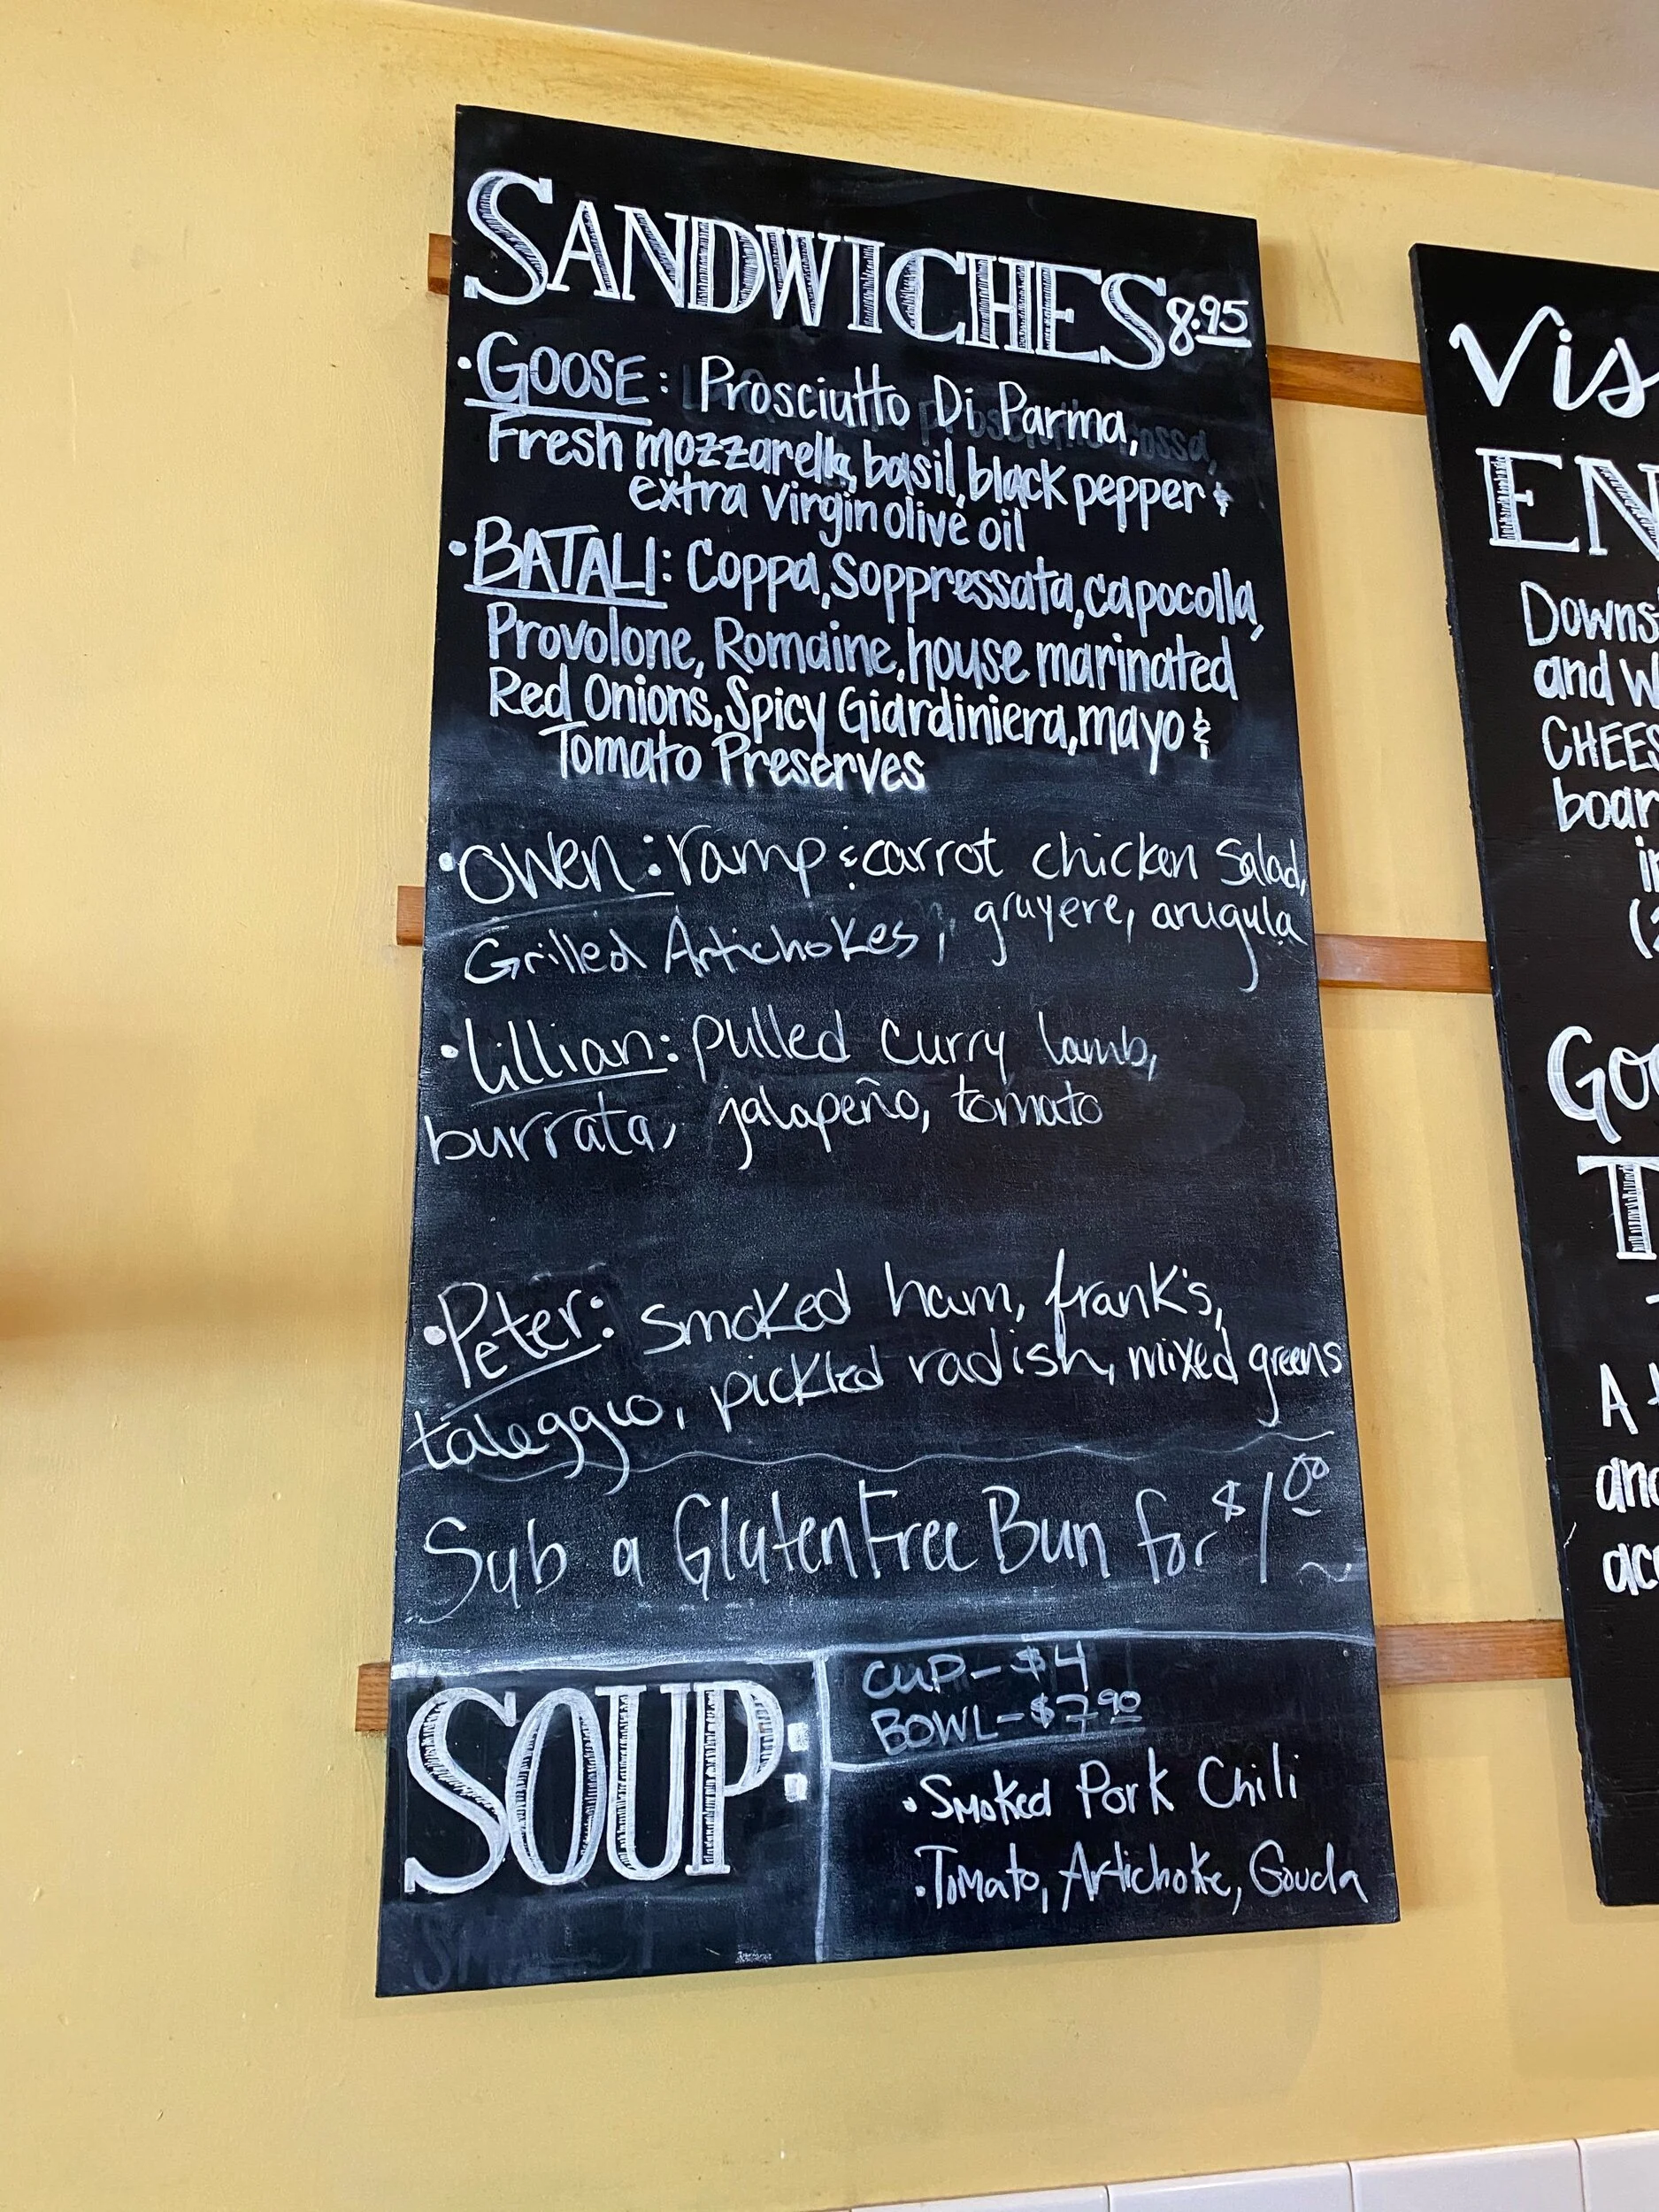 SANDWICHES 8.95
• GOOSE: Prosciutto Di Parma,
Fresh mozzarella, basil, black pepper &
extra virgin olive oil
• BATALI: Coppa, Soppressata, capocolla,
Provolone, Romaine, house marinated
Red Onions, Spicy Giardiniera, mayo &
Tomato Preserves
• Owen: ramp & carrot chicken Salad,
Grilled Artichokes, gruyere, arugula
• Lillian: pulled curry lamb,
burrata, jalapeño, tomato
• Peter: smoked ham, frank's,
taleggio, pickled radish, mixed greens
Sub a Gluten Free Bun for $1.00
SOUP:
CUP - $4
BOWL - $7.90
• Smoked Pork Chili
• Tomato, Artichoke, Gouda
Vis
EN
Downs
and W
CHEES
boar
in
(2
Goo
T
A
and
acc